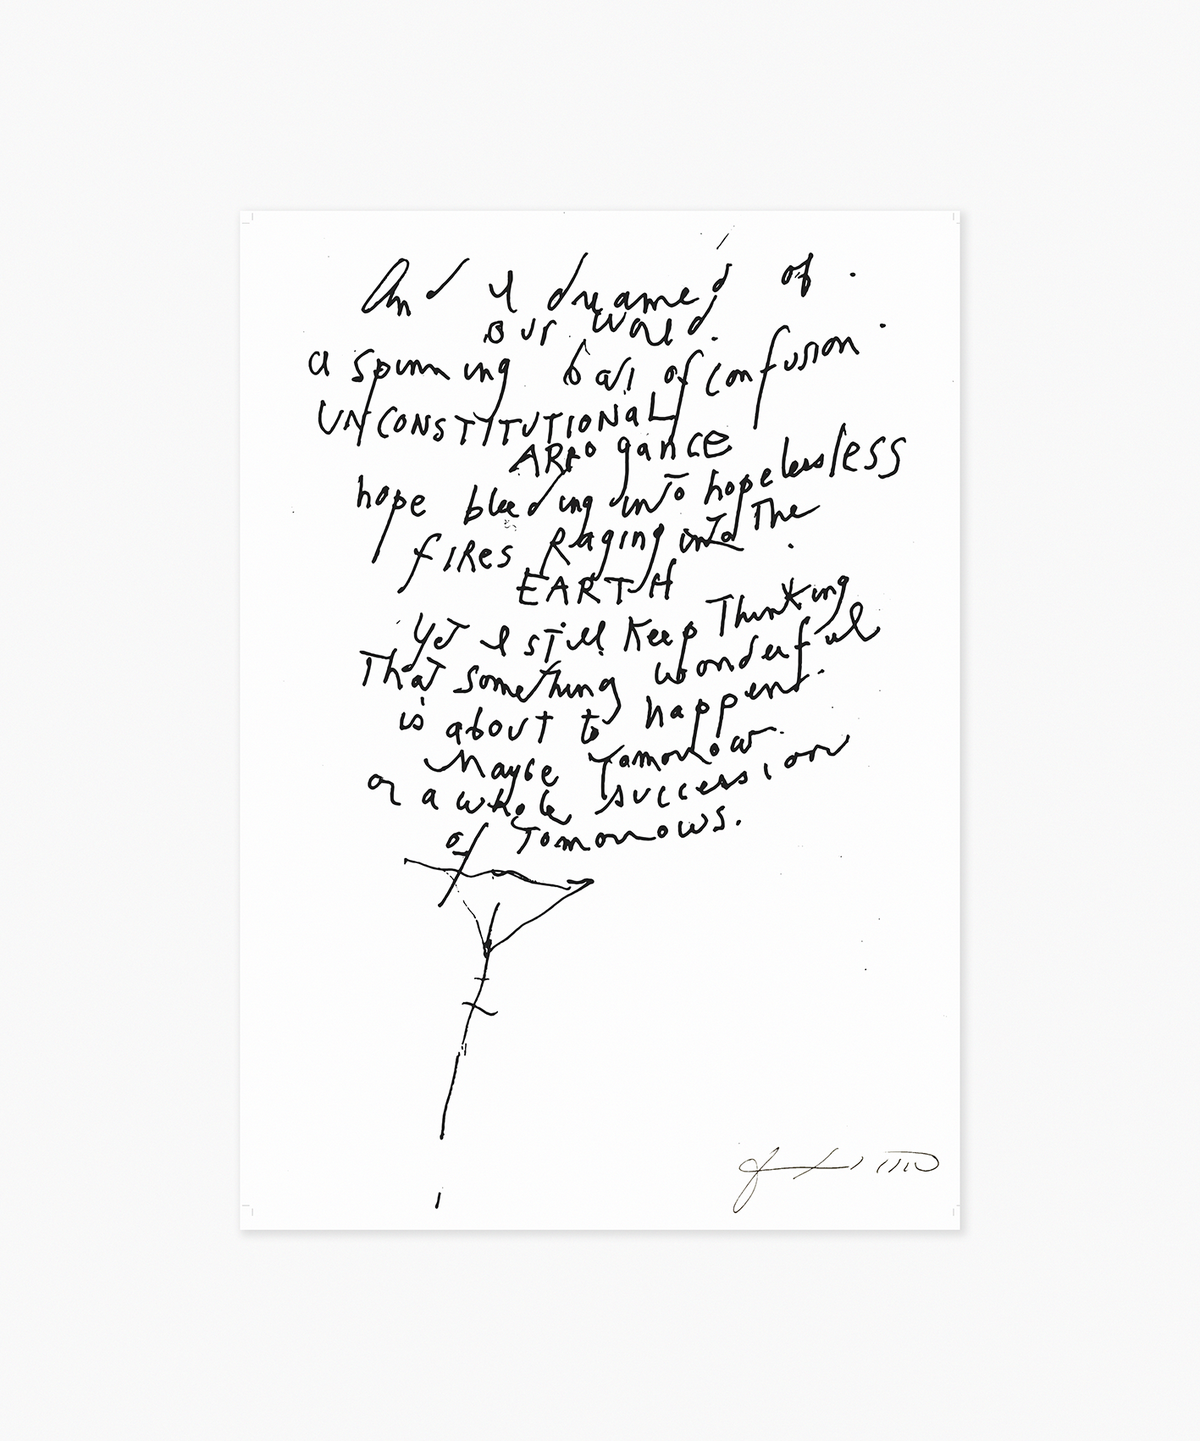 And I dreamed of
our world.
a spinning ball of confusion
UNCONSTITUTIONAL
ARROgance
hope bleeding into hopelessless
fires Raging into The
EARTH
yet I still Keep Thinking
That something wonderful
is about to happen.
Maybe Tomorrow
or a whole succession
of Tomorrows.